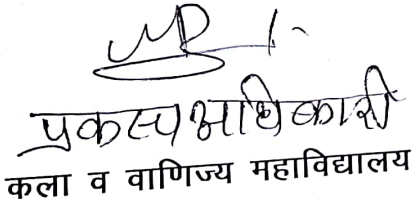 प्रकल्प अधिकारी
कला व वाणिज्य महाविद्यालय